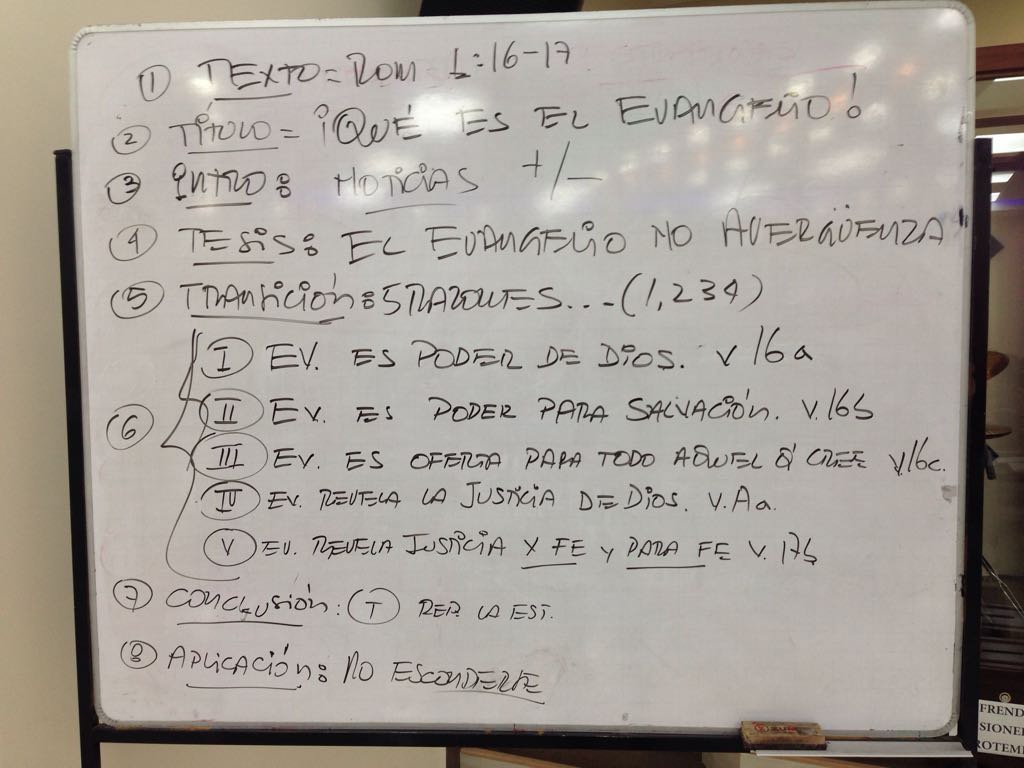 ① TEXTO = ROM 1:16-17
② TÍTULO = ¡QUÉ ES EL EVANGELIO!
③ INTRO: NOTICIAS +/-
④ TESIS: EL EVANGELIO NO AVERGÜENZA
⑤ TRANSICIÓN: 5 RAZONES... (1,234)
⑥
I EV. ES PODER DE DIOS. V 16a
II EV. ES PODER PARA SALVACIÓN. V.16b
III EV. ES OFERTA PARA TODO AQUEL Q' CREE V.16c.
IV EV. REVELA LA JUSTICIA DE DIOS. V.17a.
V EV. REVELA JUSTICIA X FE Y PARA FE V.17b
⑦ CONCLUSIÓN: T REP. LA EST.
⑧ APLICACIÓN: NO ESCONDERTE
FREND
SIONE
ROTEM